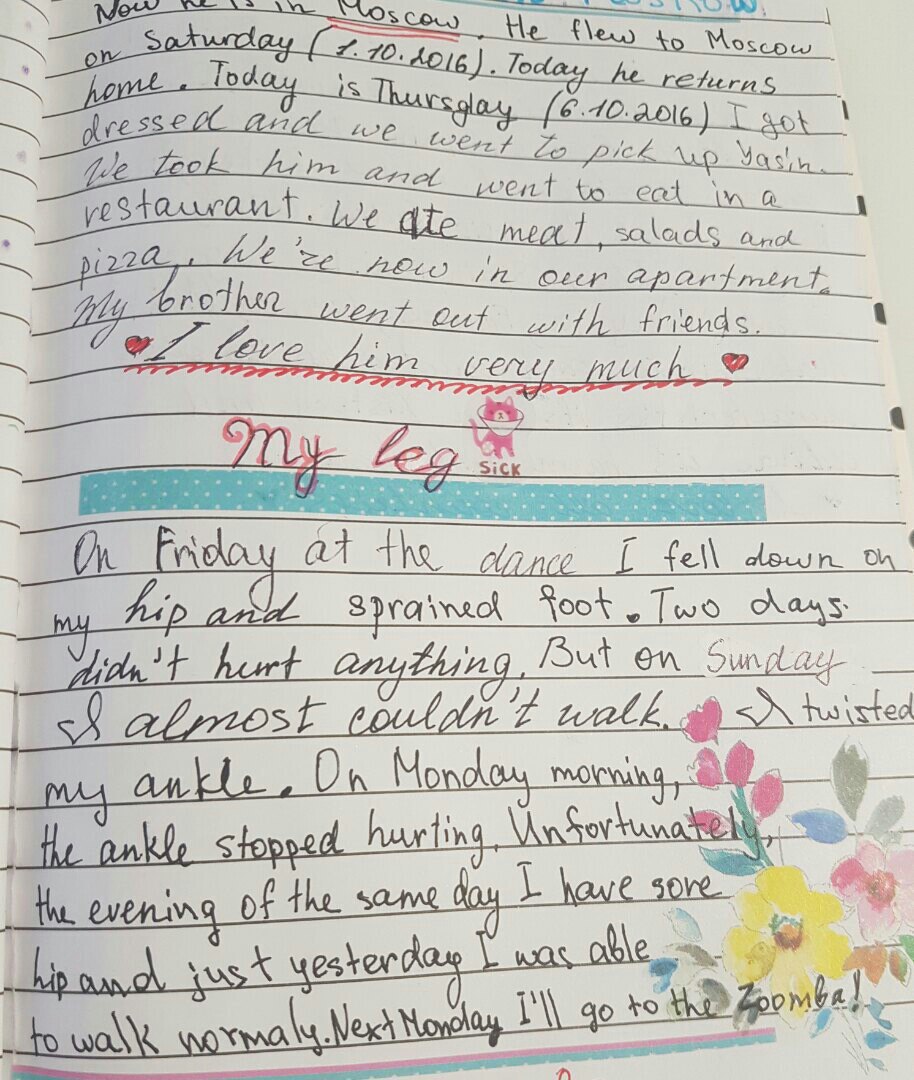 Now he is in Moscow. He flew to Moscow
on Saturday (1.10.2016). Today he returns
home. Today is Thursglay (6.10.2016) I got
dressed and we went to pick up Yasin.
We took him and went to eat in a
restaurant. We ate meat, salads and
pizza. We're now in our apartment.
My brother went out with friends.
I love him very much
My leg
SiCK
On Friday at the dance I fell down on
my hip and sprained foot. Two days
didn't hurt anything. But on Sunday
I almost couldn't walk. I twisted
my ankle. On Monday morning,
the ankle stopped hurting. Unfortunately,
the evening of the same day I have sore
hip and just yesterday I was able
to walk normaly. Next Monday I'll go to the Zoomba!